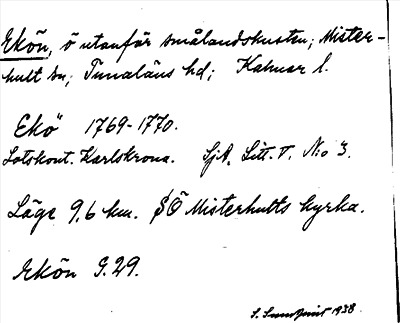 Ekön, ö utanför smålandskusten; Mister-
hult sn; Tunaläns hd; Kalmar l.
Ekö 1769-1770.
Lotskont. Karlskrona. SjA. Litt. V. N:o 3.
Läge 9,6 km. SÖ Misterhults kyrka.
Ekön G.29.
S. Sundqvist 1938